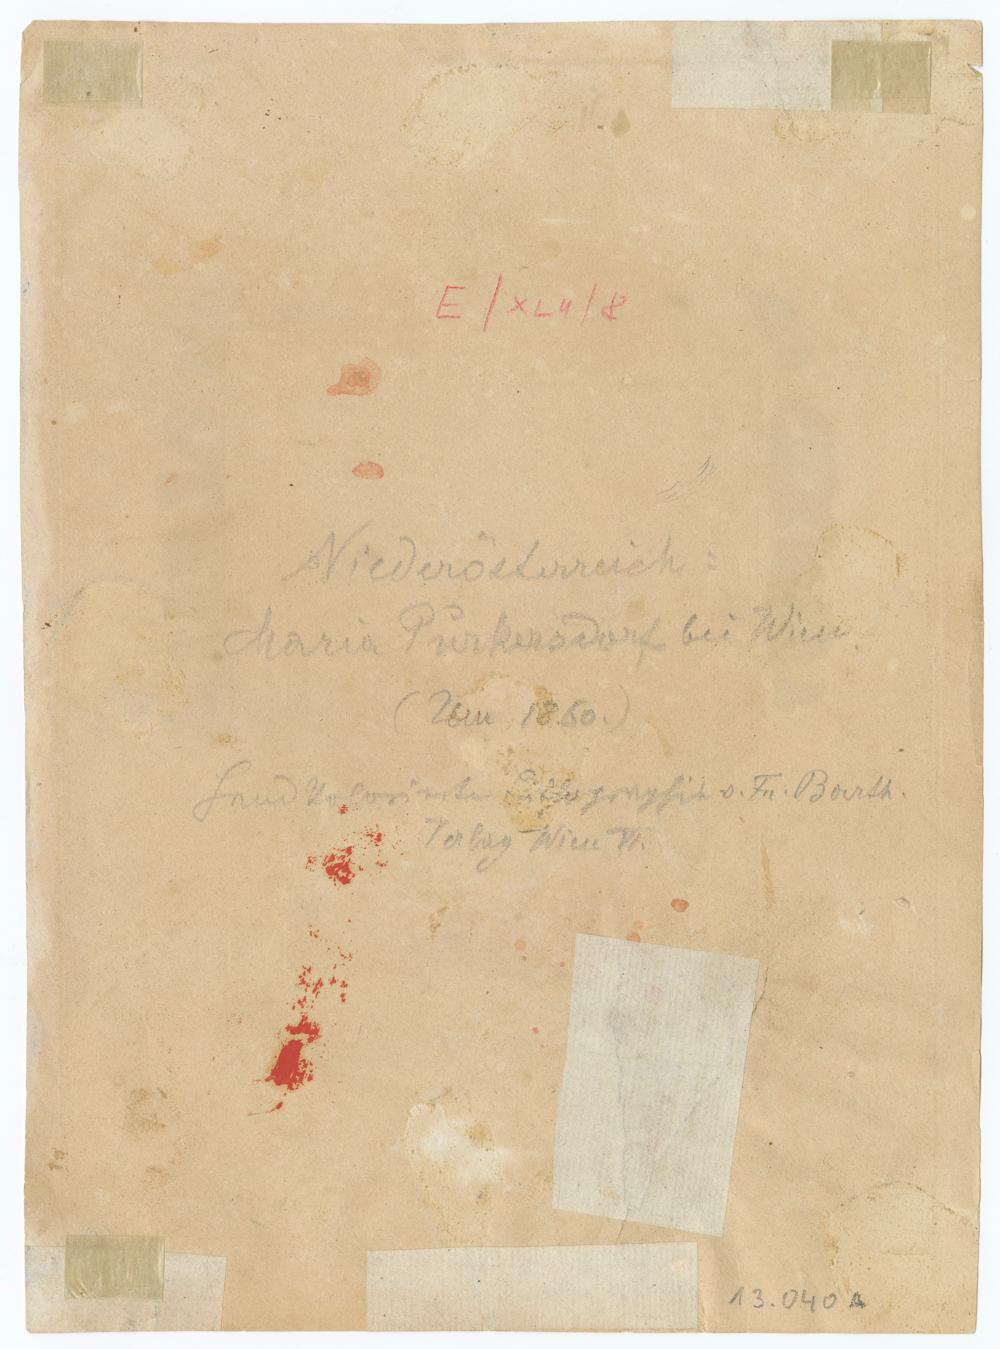 E/XLII/8
Niederösterreich:
Maria Purkersdorf bei Wien.
(Um 1850.)
Handkolorierte Lithographie v. Fr. Barth.
Verlag Wien VI.
13.040